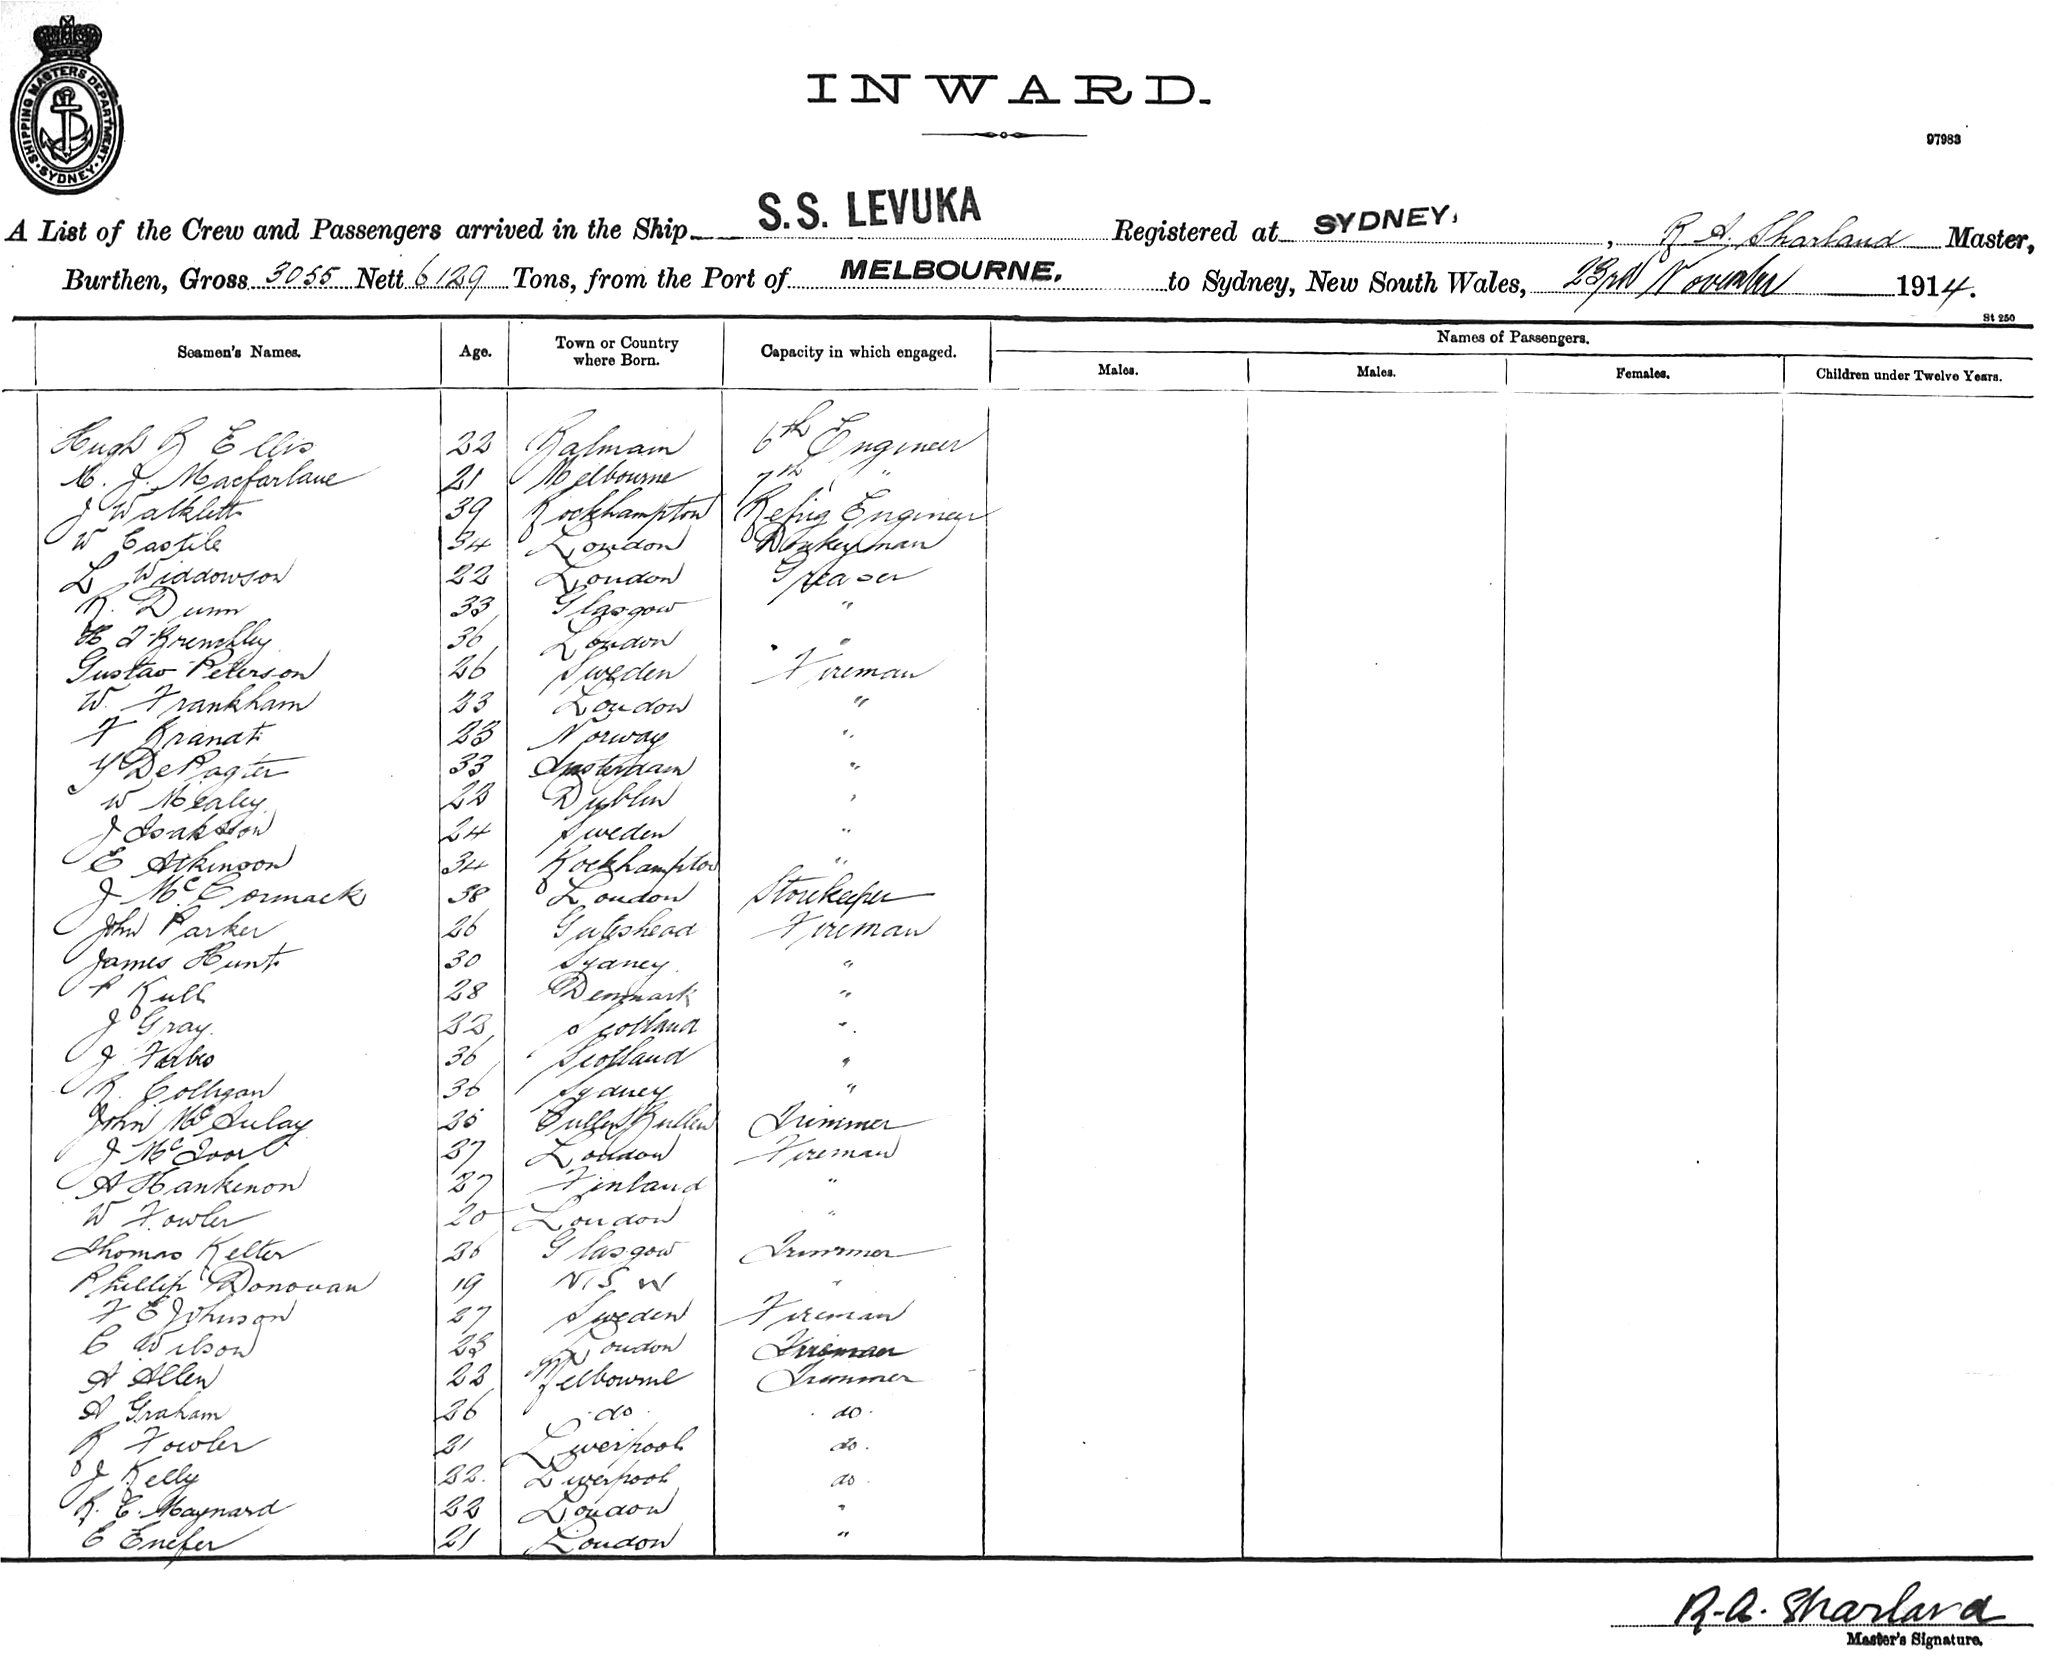 SHIPPING MASTERS DEPARTMENT. SYDNEY.
INWARD.
97983
A List of the Crew and Passengers arrived in the Ship S.S. LEVUKA Registered at SYDNEY, R A. Sharland Master,
Burthen, Gross 3055 Nett 6129 Tons, from the Port of MELBOURNE. to Sydney, New South Wales, 23rd November 1914.
St 250
Seamen's Names. Age. Town or Country where Born. Capacity in which engaged. Names of Passengers.
Males. Males. Females. Children under Twelve Years.
Hugh R Ellis 22 Balmain 6th Engineer
M. J. Macfarlane 21 Melbourne 7th "
J Walklett 39 Rockhampton Refrig Engineer
W Castile 34 London Donkeyman
L Widdowson 22 London Greaser
R. Dunn 33 Glasgow "
H J Brenchley 36 London "
Gustav Peterson 26 Sweden Fireman
W. Frankham 23 London "
F Brandt 23 Norway "
Y DePagter 33 Amsterdam "
W Mealey 23 Dublin "
J Isakson 24 Sweden "
E Atkinson 34 Rockhampton "
J McCormack 38 London Storekeeper
John Parker 26 Gateshead Fireman
James Hunt 30 Sydney "
P Kull 28 Denmark "
J Gray 22 Scotland "
J Forbes 36 Scotland "
R. Colligan 36 Sydney "
John McAulay 35 Cullen Bullen Trimmer
J McIvor 37 London Fireman
A Hankenon 27 Finland "
W Fowler 20 London "
Thomas Kelter 36 Glasgow Trimmer
Phillip Donovan 19 N.S.W "
F E Johnson 27 Sweden Fireman
C Wilson 23 London
A Allen 22 Melbourne Trimmer
A Graham 26 do do.
R Fowler 21 Liverpool do.
J Kelly 22. Liverpool do
R. C. Maynard 22 London "
E Enefer 21 London "
R. A. Sharland
Master's Signature.